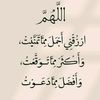 اللَّهُمَّ
ارزقني أجمل مما تمنّيت،
وأكثر مما توقعت،
وأفضل مما دعوت